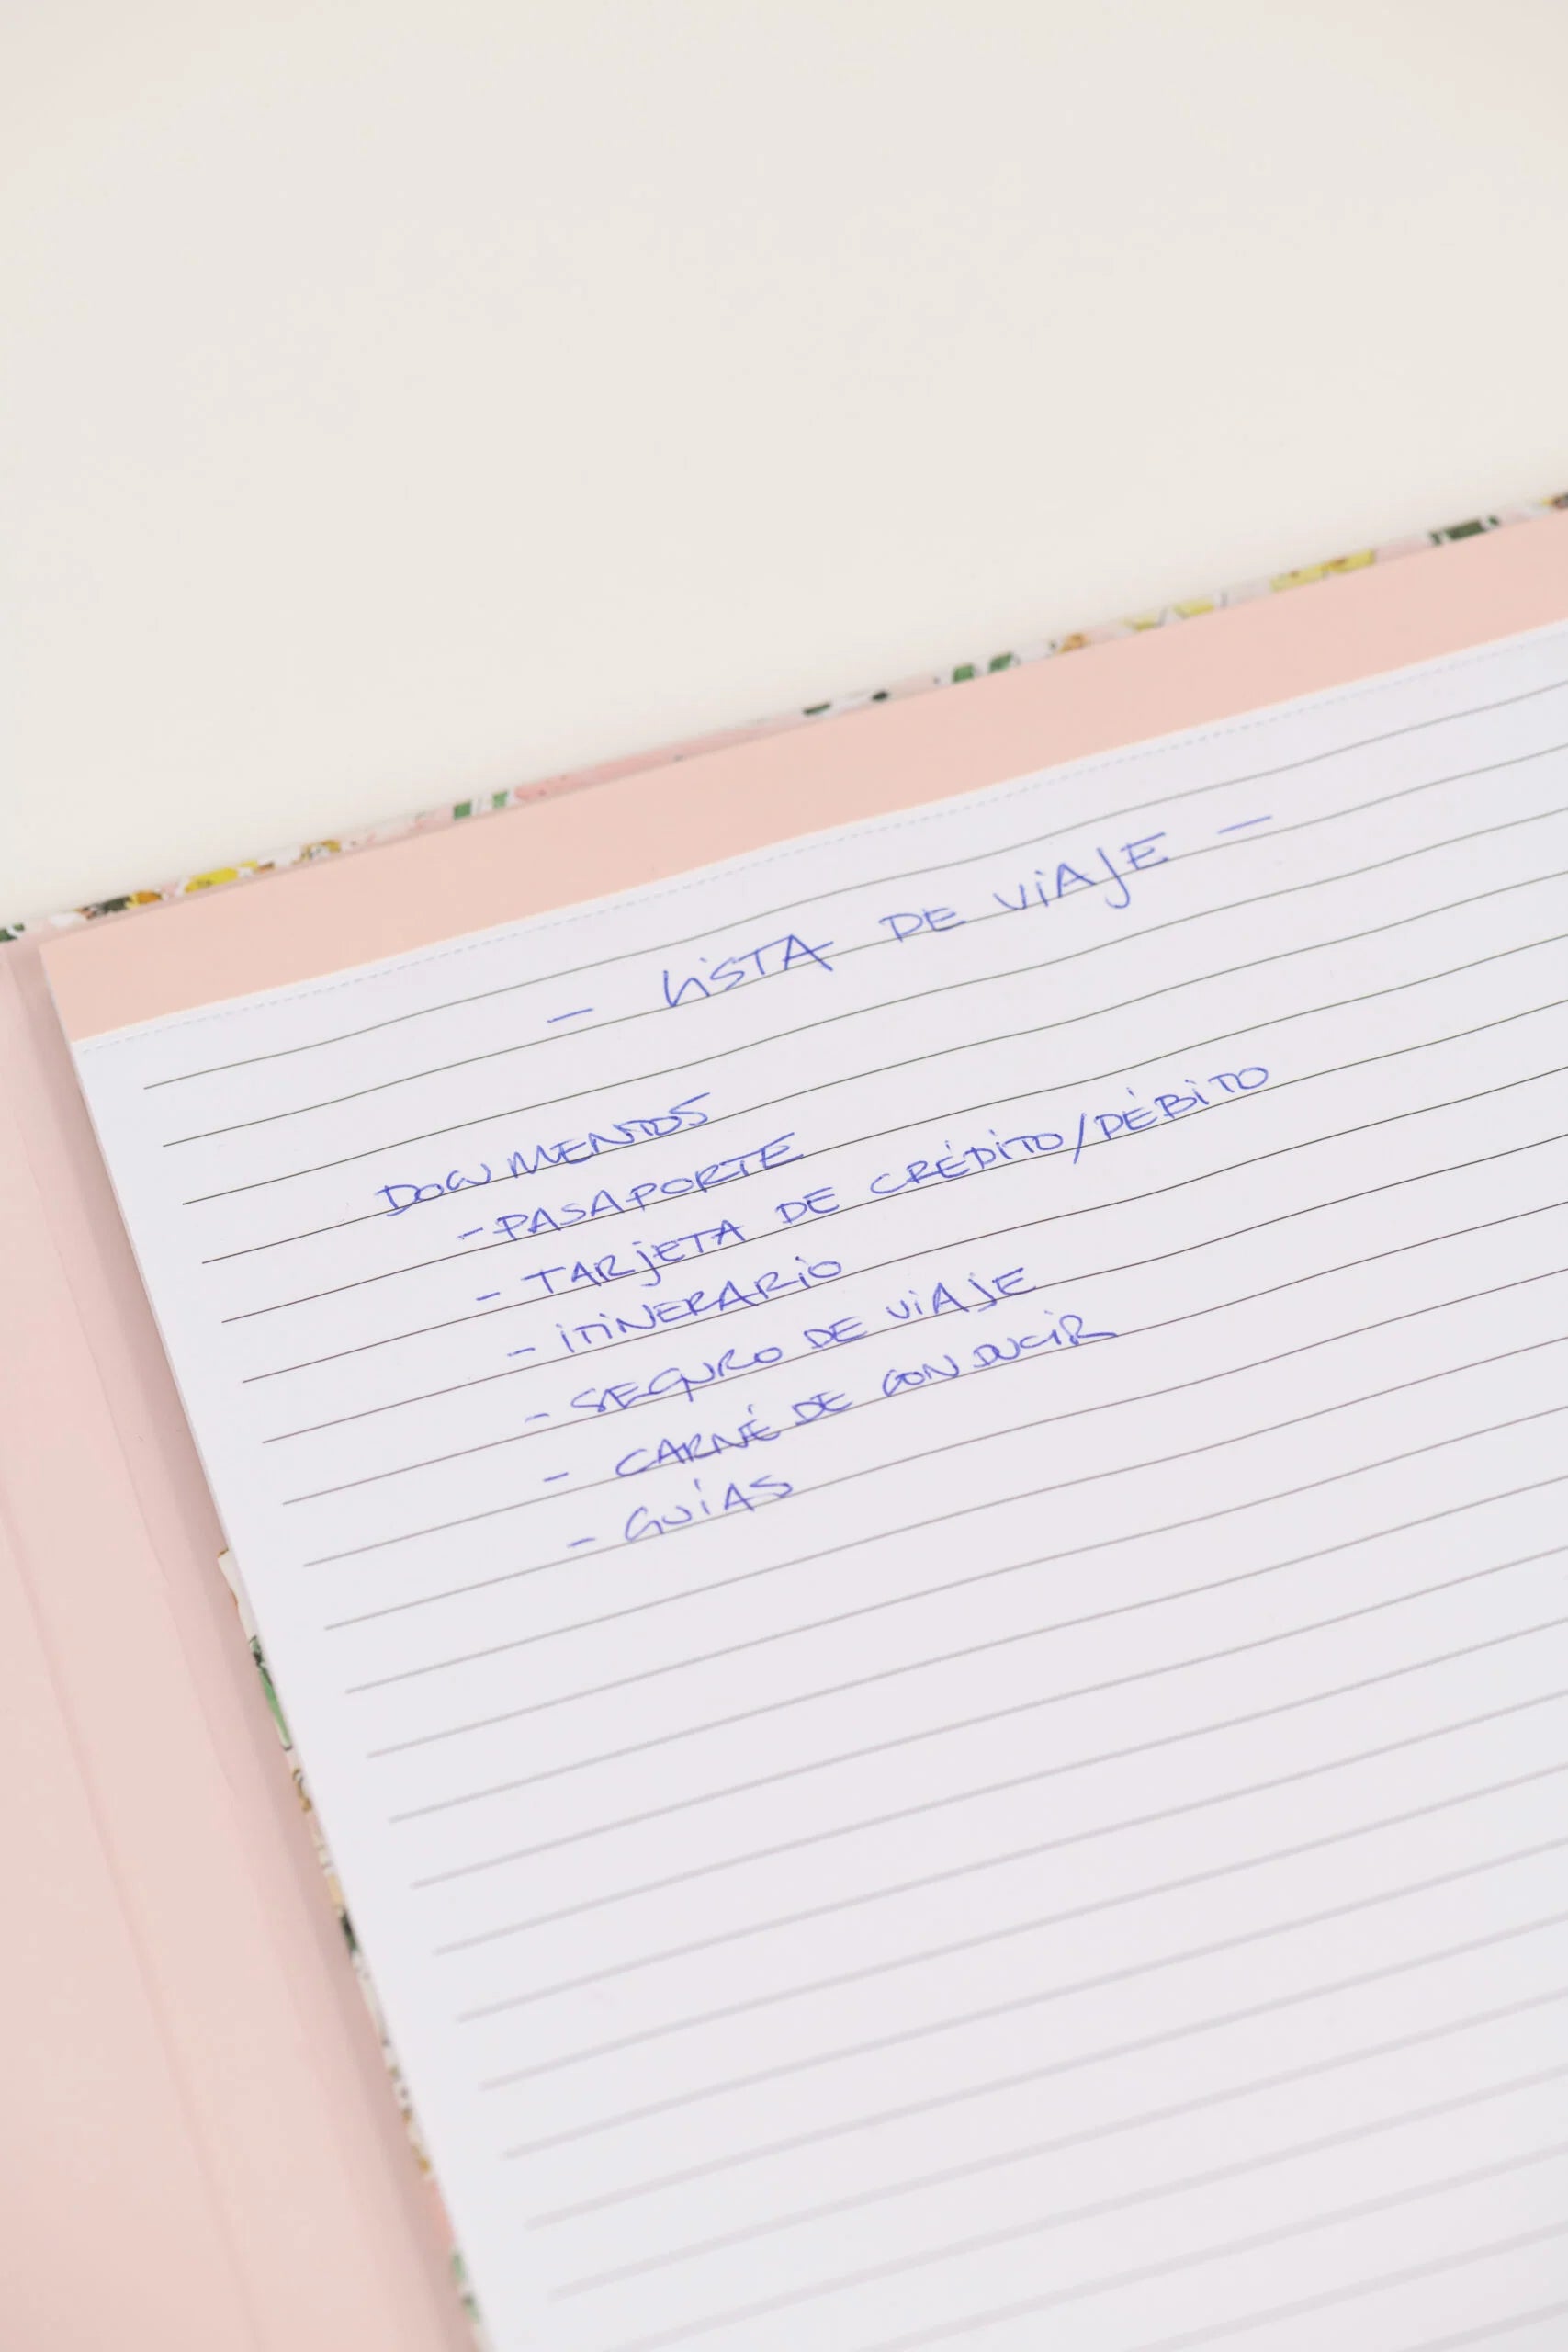 - LiSTA DE ViAJE -
DOCUMENTOS
- PASAPORTE
- TARjETA DE CRÉDiTO/DÉBiTO
- iTiNERARiO
- SEGURO DE ViAJE
- CARNÉ DE CONDUCiR
- GUÍAS